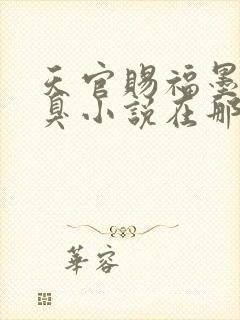 天官賜福墨
臭小說在那
華容